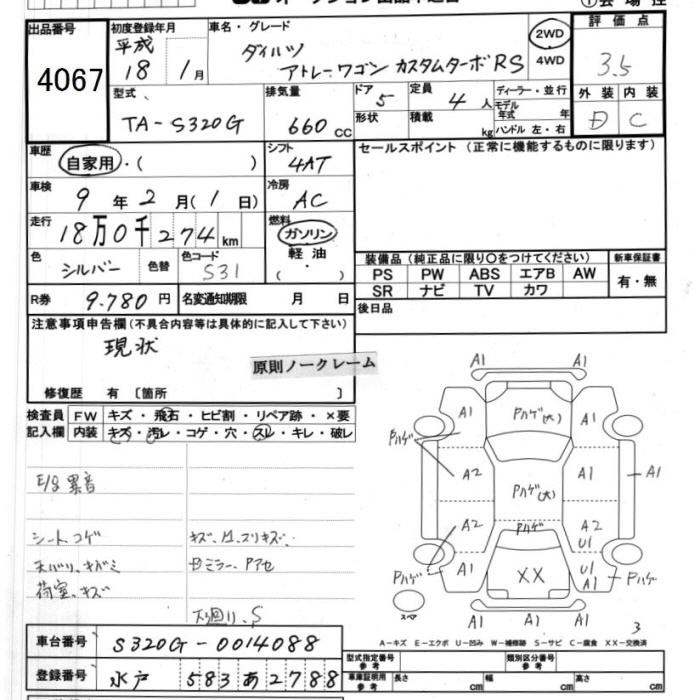 出品番号
4067
初度登録年月
平成
18 1月
車名・グレード
ダイハツ
アトレーワゴン カスタムターボRS
2WD
4WD
評価点
3.5
外装 内装
D C
型式
TA-S320G
排気量
660 CC
ドア 5
形状
定員 4 人
積載 kg
ディーラー・並行
モデル年式 年
ハンドル 左・右
車歴
自家用・( )
シフト
4AT
セールスポイント (正常に機能するものに限ります)
車検
9年2月(1日)
冷房
AC
走行
18万0千274km
燃料
ガソリン
軽油
( ・ )
色
シルバー
色替
色コード
S31
装備品 (純正品に限り〇をつけてください)
新車保証書
PS PW ABS エアB AW
有・無
SR ナビ TV カワ
R券 9.780円
名変通知期限 月 日
後日品
注意事項申告欄(不具合内容等は具体的に記入して下さい)
現状
原則ノークレーム
修復歴 有 〔箇所 〕
検査員
記入欄
FW キズ・飛石・ヒビ割・リペア跡・×要
内装 キズ・汚レ・コゲ・穴・スレ・キレ・破レ
E/g 異音
シート、コゲ
天バリ、キバミ
荷室、キズ
キズ、凹、スリキズ、
Dミラー、Pアセ
下廻り、S
A1
A1 Pハゲ(大) A1
Pハゲ
A2 Pハゲ(大) A1 A1
A2 Pハゲ A2
U1
Pハゲ A1 XX U1
A1 Pハゲ
スペア
A1 A1 A1
3
A-キズ E-エクボ U-凹み W-補修跡 S-サビ C-腐食 XX-交換済
車台番号 S320G-0014088
型式指定番号 類別区分番号
登録番号 水戸 583あ2788
車庫証明用
参考 長さ cm 幅 cm 高さ cm